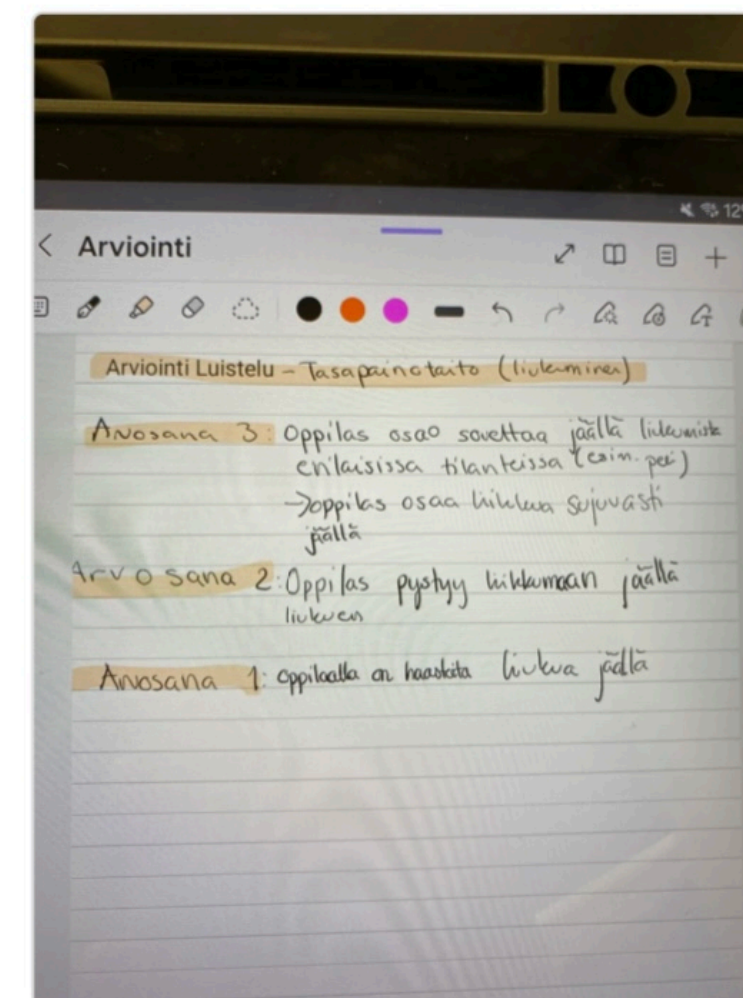 12%
Arviointi
Arviointi Luistelu – Tasapainotaito (liukuminen)
Arvosana 3: Oppilas osaa soveltaa jäällä liukumista
erilaisissa tilanteissa (esim. peli)
→ oppilas osaa liikkua sujuvasti
jäällä
Arvosana 2: Oppilas pystyy liikkumaan jäällä
liukuen
Arvosana 1: Oppilaalla on haasteita liukua jäällä